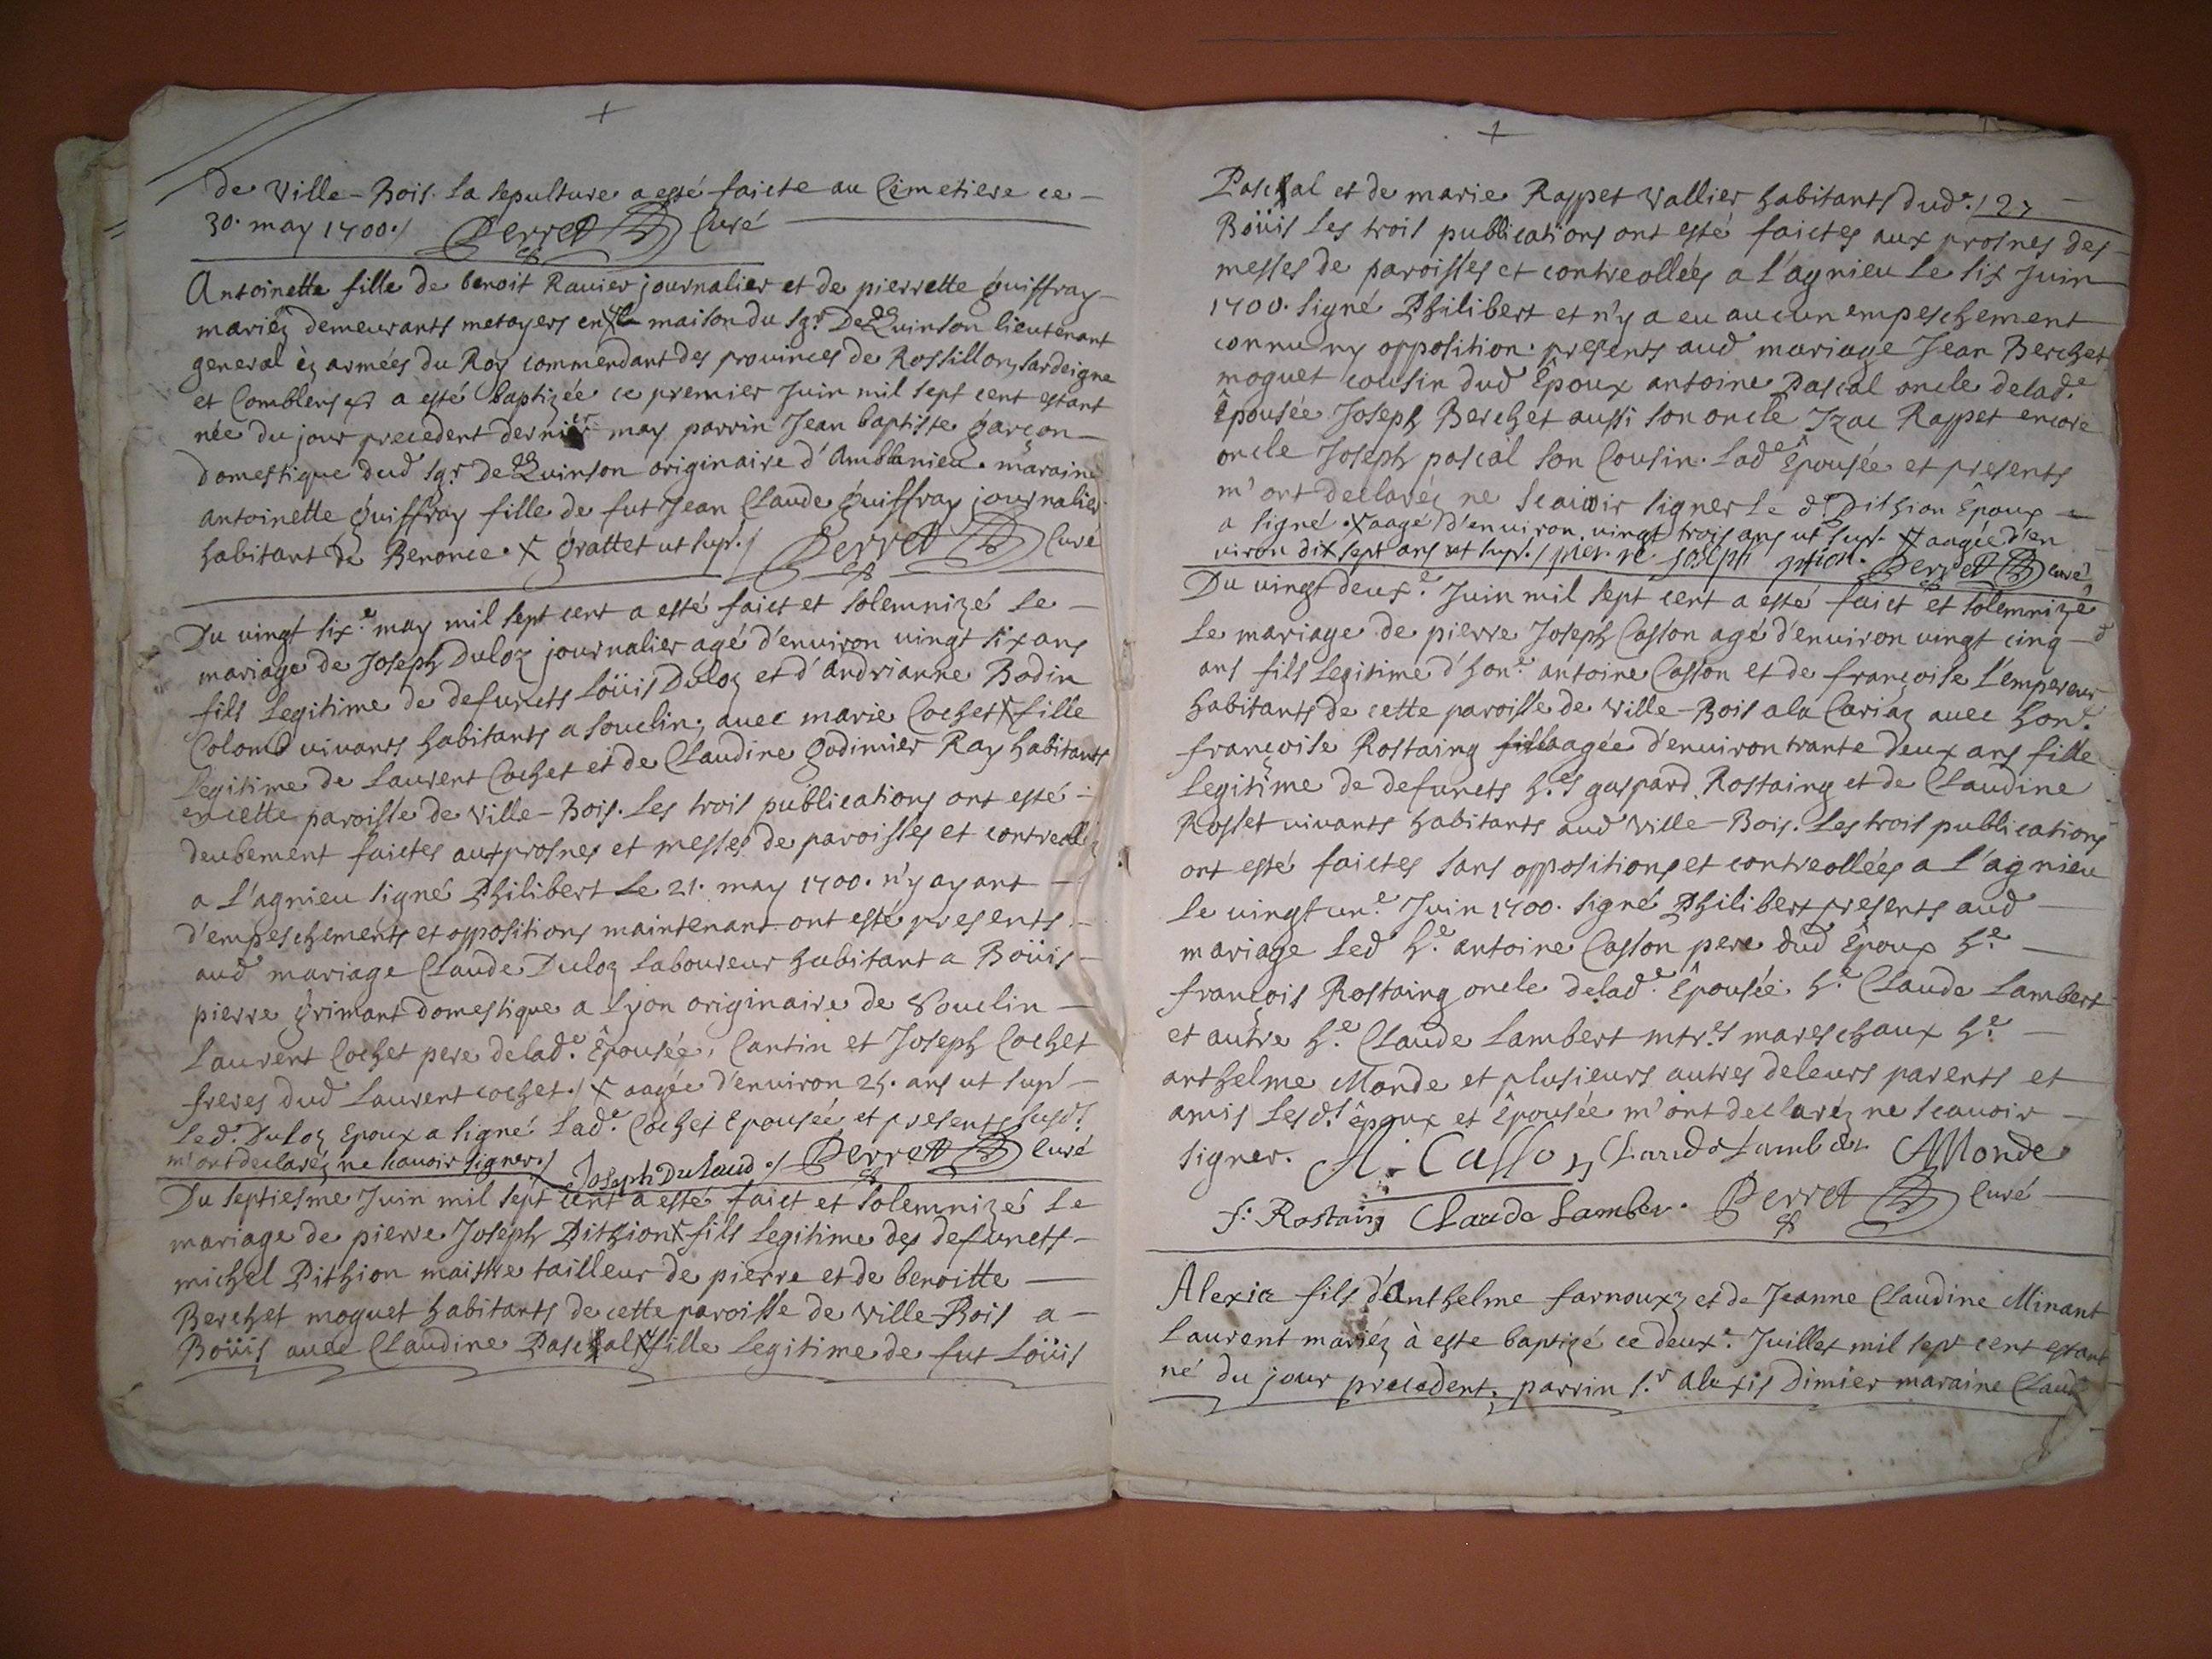 de Ville-Bois. la sepulture a esté faicte au Cimetiere ce
30. may 1700./ Perret Curé
Antoinette fille de benoit Ravier journalier et de pierrette Guiffray
mariéz demeurants metayers en la maison du sgr. De Quinson lieutenant
general èz armées du Roy commendant des provinces de Rossillon, Sardeigne
et a esté baptizée ce premier Juin mil sept cent estant
née du jour precedent dernier may parrin Jean baptiste garçon
domestique dud sgr. De Quinson originaire d'Amblanieu. maraine
antoinette Guiffray fille de fut Jean Claude Guiffray journalier
habitant de Benonce. x Grattet ut sup./ Perret Curé
Du vingt six.e may mil sept cent a esté faict et solemnizé le
mariage de Joseph Duloz journalier agé d'environ vingt six ans
fils legitime de defuncts Loüis Duloz et d'Andrianne Bodin
Colomb vivants habitants a Souclin, avec marie Cochet x fille
legitime de Laurent Cochet et de Claudine Godimier Ray habitants
en cette paroisse de Ville-Bois. Les trois publications ont esté
deubement faictes aux prosnes et messes de paroisses et contreollé
a l'agnieu signé Philibert le 21. may 1700. n'y ayant
d'empeschements et oppositions maintenant ont esté presents
aud mariage Claude Duloz laboureur habitant a Boüis
pierre Grimant domestique a Lyon originaire de Souclin
Laurent Cochet pere delad.e Êpousée, Cantin et Joseph Cochet
freres dud Laurent cochet./ x aagée d'environ 24. ans ut sup.
Led. Duloz Epoux a signé lad.e Cochet Epousée et presents susd.s
m'ont declaréz ne scavoir signer./ Joseph Dulaud ./ Perret Curé
Du septiesme Juin mil sept cent a esté faict et solemnizé le
mariage de pierre Joseph Pithion x fils legitime des defuncts
michel Pithion maistre tailleur de pierre et de benoitte
Berchet moguet habitants de cette paroisse de Ville-Bois a
Boüis avec Claudine Paschal x fille legitime de fut Loüis
Paschal et de marie Rappet Vallier habitants dud. / 27
Boüis les trois publications ont esté faictes aux prosnes des
messes de paroisses et contreollées a l'agnieu le six Juin
1700. signé Philibert et n'y a eu aucun empeschement
connu ny opposition. presents aud mariage Jean Berchet
moguet cousin dud Êpoux antoine Pascal oncle delad.e
Êpousée Joseph Berchet aussi son oncle Izac Rappet encore
oncle Joseph pascal son Cousin. Lad.e Êpousée et presents
m'ont declaréz ne scaivoir signer le d. Pithion Êpoux
a signé. x aagé d'environ vingt trois ans ut sup. x aagée d'en
viron dix sept ans ut sup./ pier re joseph ption. Perret curé
Du vingt deux.e Juin mil sept cent a esté faict et solemnizé
le mariage de pierre Joseph Casson agé d'environ vingt cinq
ans fils legitime d'hon.e antoine Casson et de françoise l'empereur
habitants de cette paroisse de Ville-Bois a la Cariaz avec hon.e
françoise Rostaing fille aagée d'environ trante deux ans fille
legitime de defuncts h.es gaspard Rostaing et de Claudine
Rosset vivants habitants aud Ville-Bois. Les trois publications
ont esté faictes sans oppositions et contreollées a l'agnieu
le vingt un.e Juin 1700. signé Philibert presents aud
mariage led h.e antoine Casson pere dud Êpoux h.e
françois Rostaing oncle delad.e Êpousée h.e Claude Lambert
et autre h.e Claude Lambert mtr.es mareschaux h.e
anthelme Monde et plusieurs autres deleurs parents et
amis les d.s êpoux et Êpousée m'ont declaréz ne scavoir
signer. A. Casson Claude Lamber AMonde
f. Rostaing Claude Lamber. Perret Curé
Alexis fils d'Anthelme farnouxz et de Jeanne Claudine Minant
Laurent mariéz à este baptizé ce deux.e Juillet mil sept cent estant
né du jour precedent. parrin s.r alexis Dimier maraine Claud